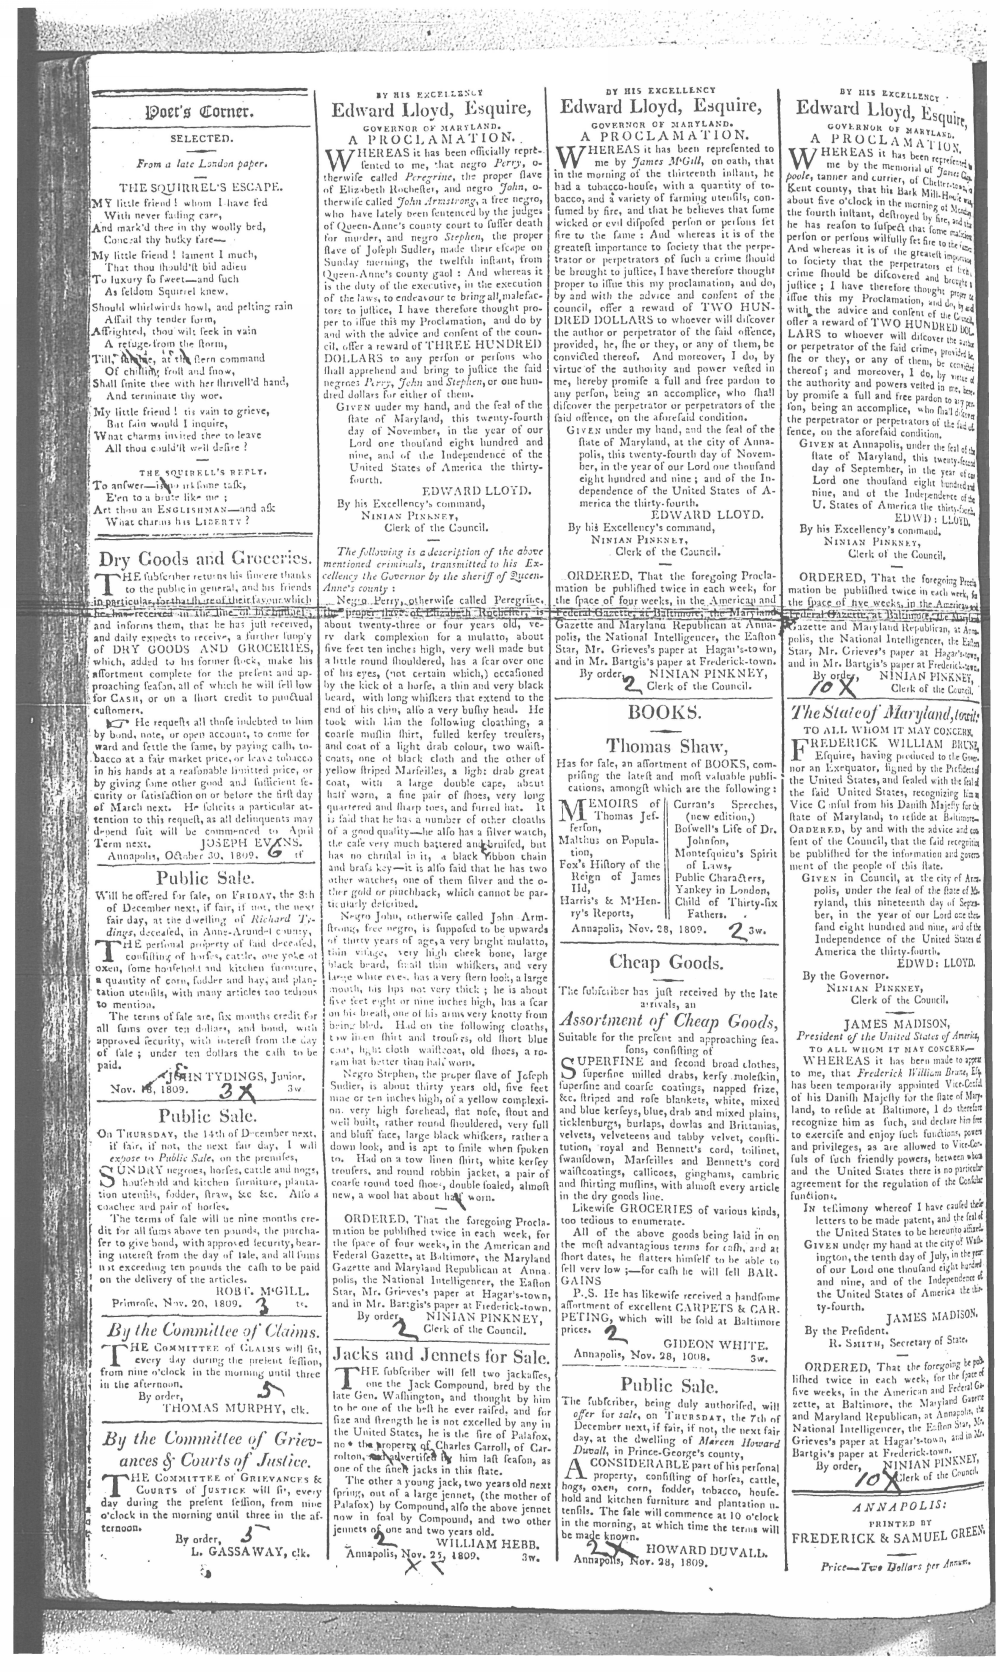 Poet's Corner.
SELECTED.
From a late London paper.
THE SQUIRREL'S ESCAPE.
MY little friend ! whom I have fed
With never failing care,
And mark'd thee in thy woolly bed,
Conceal thy husky fare—
My little friend ! lament I much,
That thou should'st bid adieu
To luxury so sweet—and such
As seldom Squirrel knew.
Should whirlwinds howl, and pelting rain
Assail thy tender form,
Affrighted, thou wilt seek in vain
A refuge from the storm,
Till, at the stern command
Of chilling frost and snow,
Shall smite thee with her shrivell'd hand,
And terminate thy woe.
My little friend ! tis vain to grieve,
But fain would I inquire,
What charms invited thee to leave
All thou could'st well desire ?
THE SQUIRRELL'S REPLY.
To answer—is irksome task,
E'en to a brute like me ;
Art thou an ENGLISHMAN—and ask
What charms his LIBERTY ?
Dry Goods and Groceries.
THE subscriber returns his sincere thanks
to the public in general, and his friends
in particular, for the share of their favour which
he has received in the line of his business,
and informs them, that he has just received,
and daily expects to receive, a further supply
of DRY GOODS AND GROCERIES,
which, added to his former stock, make his
assortment complete for the present and ap-
proaching season, all of which he will sell low
for CASH, or on a short credit to punctual
customers.
☞ He requests all those indebted to him
by bond, note, or open account, to come for
ward and settle the same, by paying cash, to-
bacco at a fair market price, or leave tobacco
in his hands at a reasonable limitted price, or
by giving some other good and sufficient se-
curity or satisfaction on or before the first day
of March next. He solicits a particular at-
tention to this request, as all delinquents may
depend suit will be commenced to April
Term next. JOSEPH EVANS.
Annapolis, October 30, 1809. 6 tf
Public Sale.
Will be offered for sale, on FRIDAY, the 8th
of December next, if fair, if not, the next
fair day, at the dwelling of Richard Ty-
dings, deceased, in Anne-Arundel county,
THE personal property of said deceased,
consisting of horses, cattle, one yoke of
oxen, some household and kitchen furniture,
a quantity of corn, fodder and hay, and plan-
tation utensils, with many articles too tedious
to mention.
The terms of sale are, six months credit for
all sums over ten dollars, and bond, with
approved security, with interest from the day
of sale ; under ten dollars the cash to be
paid.
JOHN TYDINGS, Junior.
Nov. 18, 1809. 3 X 3w
Public Sale.
On THURSDAY, the 14th of December next,
if fair, if not, the next fair day, I will
expose to Public Sale, on the premises,
SUNDRY negroes, horses, cattle and hogs,
household and kitchen furniture, planta-
tion utensils, fodder, straw, &c &c. Also a
coachee and pair of horses.
The terms of sale will be nine months cre-
dit for all sums above ten pounds, the purcha-
ser to give bond, with approved security, bear-
ing interest from the day of sale, and all sums
not exceeding ten pounds the cash to be paid
on the delivery of the articles.
ROBT. M'GILL.
Primrose, Nov. 20, 1809. 3 ts.
By the Committee of Claims.
THE COMMITTEE of CLAIMS will sit,
every day during the present session,
from nine o'clock in the morning until three
in the afternoon.
By order, 5
THOMAS MURPHY, clk.
By the Committee of Griev-
ances & Courts of Justice.
THE COMMITTEE of GRIEVANCES &
COURTS of JUSTICE will sit, every
day during the present session, from nine
o'clock in the morning until three in the af-
ternoon.
By order, 5
L. GASSAWAY, clk.
BY HIS EXCELLENCY
Edward Lloyd, Esquire,
GOVERNOR OF MARYLAND.
A PROCLAMATION.
WHEREAS it has been officially repre-
sented to me, that negro Perry, o-
therwise called Peregrine, the proper slave
of Elizabeth Rochester, and negro John, o-
therwise called John Armstrong, a free negro,
who have lately been sentenced by the judges
of Queen-Anne's county court to suffer death
for murder, and negro Stephen, the proper
slave of Joseph Sudler, made their escape on
Sunday morning, the twelfth instant, from
Queen-Anne's county gaol : And whereas it
is the duty of the executive, in the execution
of the laws, to endeavour to bring all malefac-
tors to justice, I have therefore thought pro-
per to issue this my proclamation, and do by
and with the advice and consent of the coun-
cil, offer a reward of THREE HUNDRED
DOLLARS to any person or persons who
shall apprehend and bring to justice the said
negroes Perry, John and Stephen, or one hun-
dred dollars for either of them.
GIVEN under my hand, and the seal of the
state of Maryland, this twenty-fourth
day of November, in the year of our
Lord one thousand eight hundred and
nine, and of the Independence of the
United States of America the thirty-
fourth.
EDWARD LLOYD.
By his Excellency's command,
NINIAN PINKNEY,
Clerk of the Council.
The following is a description of the above
mentioned criminals, transmitted to his Ex-
cellency the Governor by the sheriff of Queen-
Anne's county :
Negro Perry, otherwise called Peregrine,
the proper slave of Elizabeth Rochester, is
about twenty-three or four years old, ve-
ry dark complexion for a mulatto, about
five feet ten inches high, very well made but
a little round shouldered, has a scar over one
of his eyes, (not certain which,) occasioned
by the kick of a horse, a thin and very black
beard, with long whiskers that extend to the
end of his chin, also a very bushy head. He
took with him the following cloathing, a
coarse muslin shirt, fulled kersey trousers,
and coat of a light drab colour, two waist-
coats, one of black cloth and the other of
yellow striped Marseilles, a light drab great
coat, with a large double cape, about
half worn, a fine pair of shoes, very long
quartered and sharp toes, and furred hat. It
is said that he has a number of other cloaths
of a good quality—he also has a silver watch,
the case very much battered and bruised, but
has no christal in it, a black ribbon chain
and brass key—it is also said that he has two
other watches, one of them silver and the o-
ther gold or pinchback, which cannot be par-
ticularly described.
Negro John, otherwise called John Arm-
strong, free negro, is supposed to be upwards
of thirty years of age, a very bright mulatto,
thin visage, very high cheek bone, large
black beard, small thin whiskers, and very
large white eyes, has a very stern look, a large
mouth, his lips not very thick ; he is about
five feet eight or nine inches high, has a scar
on his breast, one of his arms very knotty from
being bled. Had on the following cloaths,
tow linen shirt and trousers, old short blue
coat, light cloth waistcoat, old shoes, a ro-
ram hat better than half worn.
Negro Stephen, the proper slave of Joseph
Sudler, is about thirty years old, five feet
nine or ten inches high, of a yellow complexi-
on, very high forehead, flat nose, stout and
well built, rather round shouldered, very full
and bluff face, large black whiskers, rather a
down look, and is apt to smile when spoken
to. Had on a tow linen shirt, white kersey
trousers, and round robbin jacket, a pair of
coarse round toed shoes, double soaled, almost
new, a wool hat about half worn.
ORDERED, That the foregoing Procla-
mation be published twice in each week, for
the space of four weeks, in the American and
Federal Gazette, at Baltimore, the Maryland
Gazette and Maryland Republican at Anna
polis, the National Intelligencer, the Easton
Star, Mr. Grieves's paper at Hagar's-town,
and in Mr. Bartgis's paper at Frederick-town.
By order, NINIAN PINKNEY,
2 Clerk of the Council.
Jacks and Jennets for Sale.
THE subscriber will sell two jackasses,
one the Jack Compound, bred by the
late Gen. Washington, and thought by him
to be one of the best he ever raised, and for
size and strength he is not excelled by any in
the United States, he is the sire of Palafox,
now the property of Charles Carroll, of Car-
rolton, advertised by him last season, as
one of the finest jacks in this state.
The other a young jack, two years old next
spring, out of a large jennet, (the mother of
Palafox) by Compound, also the above jennet
now in foal by Compound, and two other
jennets of one and two years old.
2 WILLIAM HEBB.
Annapolis, Nov. 25, 1809. 3w.
BY HIS EXCELLENCY
Edward Lloyd, Esquire,
GOVERNOR OF MARYLAND.
A PROCLAMATION.
WHEREAS it has been represented to
me by James M'Gill, on oath, that
in the morning of the thirteenth instant, he
had a tobacco-house, with a quantity of to-
bacco, and a variety of farming utensils, con-
sumed by fire, and that he believes that some
wicked or evil disposed person or persons set
fire to the same : And whereas it is of the
greatest importance to society that the perpe-
trator or perpetrators of such a crime should
be brought to justice, I have therefore thought
proper to issue this my proclamation, and do,
by and with the advice and consent of the
council, offer a reward of TWO HUN-
DRED DOLLARS to whoever will discover
the author or perpetrator of the said offence,
provided, he, she or they, or any of them, be
convicted thereof. And moreover, I do, by
virtue of the authority and power vested in
me, hereby promise a full and free pardon to
any person, being an accomplice, who shall
discover the perpetrator or perpetrators of the
said offence, on the aforesaid condition.
GIVEN under my hand, and the seal of the
state of Maryland, at the city of Anna-
polis, this twenty-fourth day of Novem-
ber, in the year of our Lord one thousand
eight hundred and nine ; and of the In-
dependence of the United States of A-
merica the thirty-fourth.
EDWARD LLOYD.
By his Excellency's command,
NINIAN PINKNEY,
Clerk of the Council.
ORDERED, That the foregoing Procla-
mation be published twice in each week, for
the space of four weeks, in the American and
Federal Gazette, at Baltimore, the Maryland
Gazette and Maryland Republican at Anna-
polis, the National Intelligencer, the Easton
Star, Mr. Grieves's paper at Hagar's-town,
and in Mr. Bartgis's paper at Frederick-town.
By order, NINIAN PINKNEY,
2 Clerk of the Council.
BOOKS.
Thomas Shaw,
Has for sale, an assortment of BOOKS, com-
prising the latest and most valuable publi-
cations, amongst which are the following :
MEMOIRS of
Thomas Jef-
ferson,
Malthus on Popula-
tion,
Fox's History of the
Reign of James
IId,
Harris's & M'Hen-
ry's Reports,
Curran's Speeches,
(new edition,)
Boswell's Life of Dr.
Johnson,
Montesquieu's Spirit
of Laws,
Public Characters,
Yankey in London,
Child of Thirty-six
Fathers.
Annapolis, Nov. 28, 1809. 2 3w.
Cheap Goods.
The subscriber has just received by the late
arrivals, an
Assortment of Cheap Goods,
Suitable for the present and approaching sea-
sons, consisting of
SUPERFINE and second broad clothes,
superfine milled drabs, kersy moleskin,
superfine and coarse coatings, napped frize,
&c. striped and rose blankets, white, mixed
and blue kerseys, blue, drab and mixed plains,
ticklenburgs, burlaps, dowlas and Brittanias,
velvets, velveteens and tabby velvet, consti-
tution, royal and Bennett's cord, toilinet,
swansdown, Marseilles and Bennett's cord
waistcoatings, callicoes, ginghams, cambric
and shirting muslins, with almost every article
in the dry goods line.
Likewise GROCERIES of various kinds,
too tedious to enumerate.
All of the above goods being laid in on
the most advantagious terms for cash, and at
short dates, he flatters himself to be able to
sell very low ;—for cash he will sell BAR-
GAINS
P.S. He has likewise received a handsome
assortment of excellent CARPETS & CAR-
PETING, which will be sold at Baltimore
prices. 2
GIDEON WHITE.
Annapolis, Nov. 28, 1008. 3w.
Public Sale.
The subscriber, being duly authorised, will
offer for sale, on THURSDAY, the 7th of
December next, if fair, if not, the next fair
day, at the dwelling of Mareen Howard
Duvall, in Prince-George's county,
A CONSIDERABLE part of his personal
property, consisting of horses, cattle,
hogs, oxen, corn, fodder, tobacco, house-
hold and kitchen furniture and plantation u-
tensils. The sale will commence at 10 o'clock
in the morning, at which time the terms will
be made known.
2 X HOWARD DUVALL.
Annapolis, Nov. 28, 1809.
BY HIS EXCELLENCY
Edward Lloyd, Esquire,
GOVERNOR OF MARYLAND.
A PROCLAMATION.
WHEREAS it has been represented to
me by the memorial of James Clay-
poole, tanner and currier, of Chester-town,
Kent county, that his Bark Mill-House was,
about five o'clock in the morning of Monday
the fourth instant, destroyed by fire, and that
he has reason to suspect that some malicious
person or persons wilfully set fire to the same.
And whereas it is of the greatest importance
to society that the perpetrators of such
crime should be discovered and brought to
justice ; I have therefore thought proper to
issue this my Proclamation, and do, by and
with the advice and consent of the Council,
offer a reward of TWO HUNDRED DOL-
LARS to whoever will discover the author
or perpetrator of the said crime, provided he,
she or they, or any of them, be convicted
thereof ; and moreover, I do, by virtue of
the authority and powers vested in me, here-
by promise a full and free pardon to any per-
son, being an accomplice, who shall discover
the perpetrator or perpetrators of the said of-
fence, on the aforesaid condition.
GIVEN at Annapolis, under the seal of the
state of Maryland, this twenty-second
day of September, in the year of our
Lord one thousand eight hundred and
nine, and of the Independence of the
U. States of America the thirty-fourth.
EDWD: LLOYD,
By his Excellency's command,
NINIAN PINKNEY,
Clerk of the Council,
ORDERED, That the foregoing Procla-
mation be published twice in each week, for
the space of five weeks, in the American and
Federal Gazette, at Baltimore, the Maryland
Gazette and Maryland Republican, at Anna-
polis, the National Intelligencer, the Easton
Star, Mr. Grieves's paper at Hagar's-town,
and in Mr. Bartgis's paper at Frederick-town.
By order, NINIAN PINKNEY,
10 X Clerk of the Council.
The State of Maryland, to wit:
TO ALL WHOM IT MAY CONCERN,
FREDERICK WILLIAM BRUNE,
Esquire, having produced to the Gover-
nor an Exequator, signed by the President of
the United States, and sealed with the seal of
the said United States, recognizing him as
Vice Consul from his Danish Majesty for the
state of Maryland, to reside at Baltimore—
ORDERED, by and with the advice and con
sent of the Council, that the said recognition
be published for the information and govern
ment of the people of this state.
GIVEN in Council, at the city of Anna-
polis, under the seal of the state of Ma-
ryland, this nineteenth day of Septem-
ber, in the year of our Lord one thou-
sand eight hundred and nine, and of the
Independence of the United States of
America the thirty-fourth.
EDWD: LLOYD.
By the Governor.
NINIAN PINKNEY,
Clerk of the Council.
JAMES MADISON,
President of the United States of America,
TO ALL WHOM IT MAY CONCERN—
WHEREAS it has been made to appear
to me, that Frederick William Brune, Esq.
has been temporarily appointed Vice-Consul
of his Danish Majesty for the state of Mary-
land, to reside at Baltimore, I do therefore
recognize him as such, and declare him free
to exercise and enjoy such functions, powers
and privileges, as are allowed to Vice-Con-
suls of such friendly powers, between whom
and the United States there is no particular
agreement for the regulation of the Consular
functions.
IN testimony whereof I have caused these
letters to be made patent, and the seal of
the United States to be hereunto affixed.
GIVEN under my hand at the city of Wash-
ington, the tenth day of July, in the year
of our Lord one thousand eight hundred
and nine, and of the Independence of
the United States of America the thir-
ty-fourth.
JAMES MADISON.
By the President.
R. SMITH, Secretary of State.
ORDERED, That the foregoing be pub-
lished twice in each week, for the space of
five weeks, in the American and Federal Ga-
zette, at Baltimore, the Maryland Gazette
and Maryland Republican, at Annapolis, the
National Intelligencer, the Easton Star, Mr.
Grieves's paper at Hagar's-town, and in Mr.
Bartgis's paper at Frederick-town.
By order, NINIAN PINKNEY,
10 X Clerk of the Council.
ANNAPOLIS:
PRINTED BY
FREDERICK & SAMUEL GREEN.
Price—Two Dollars per Annum.